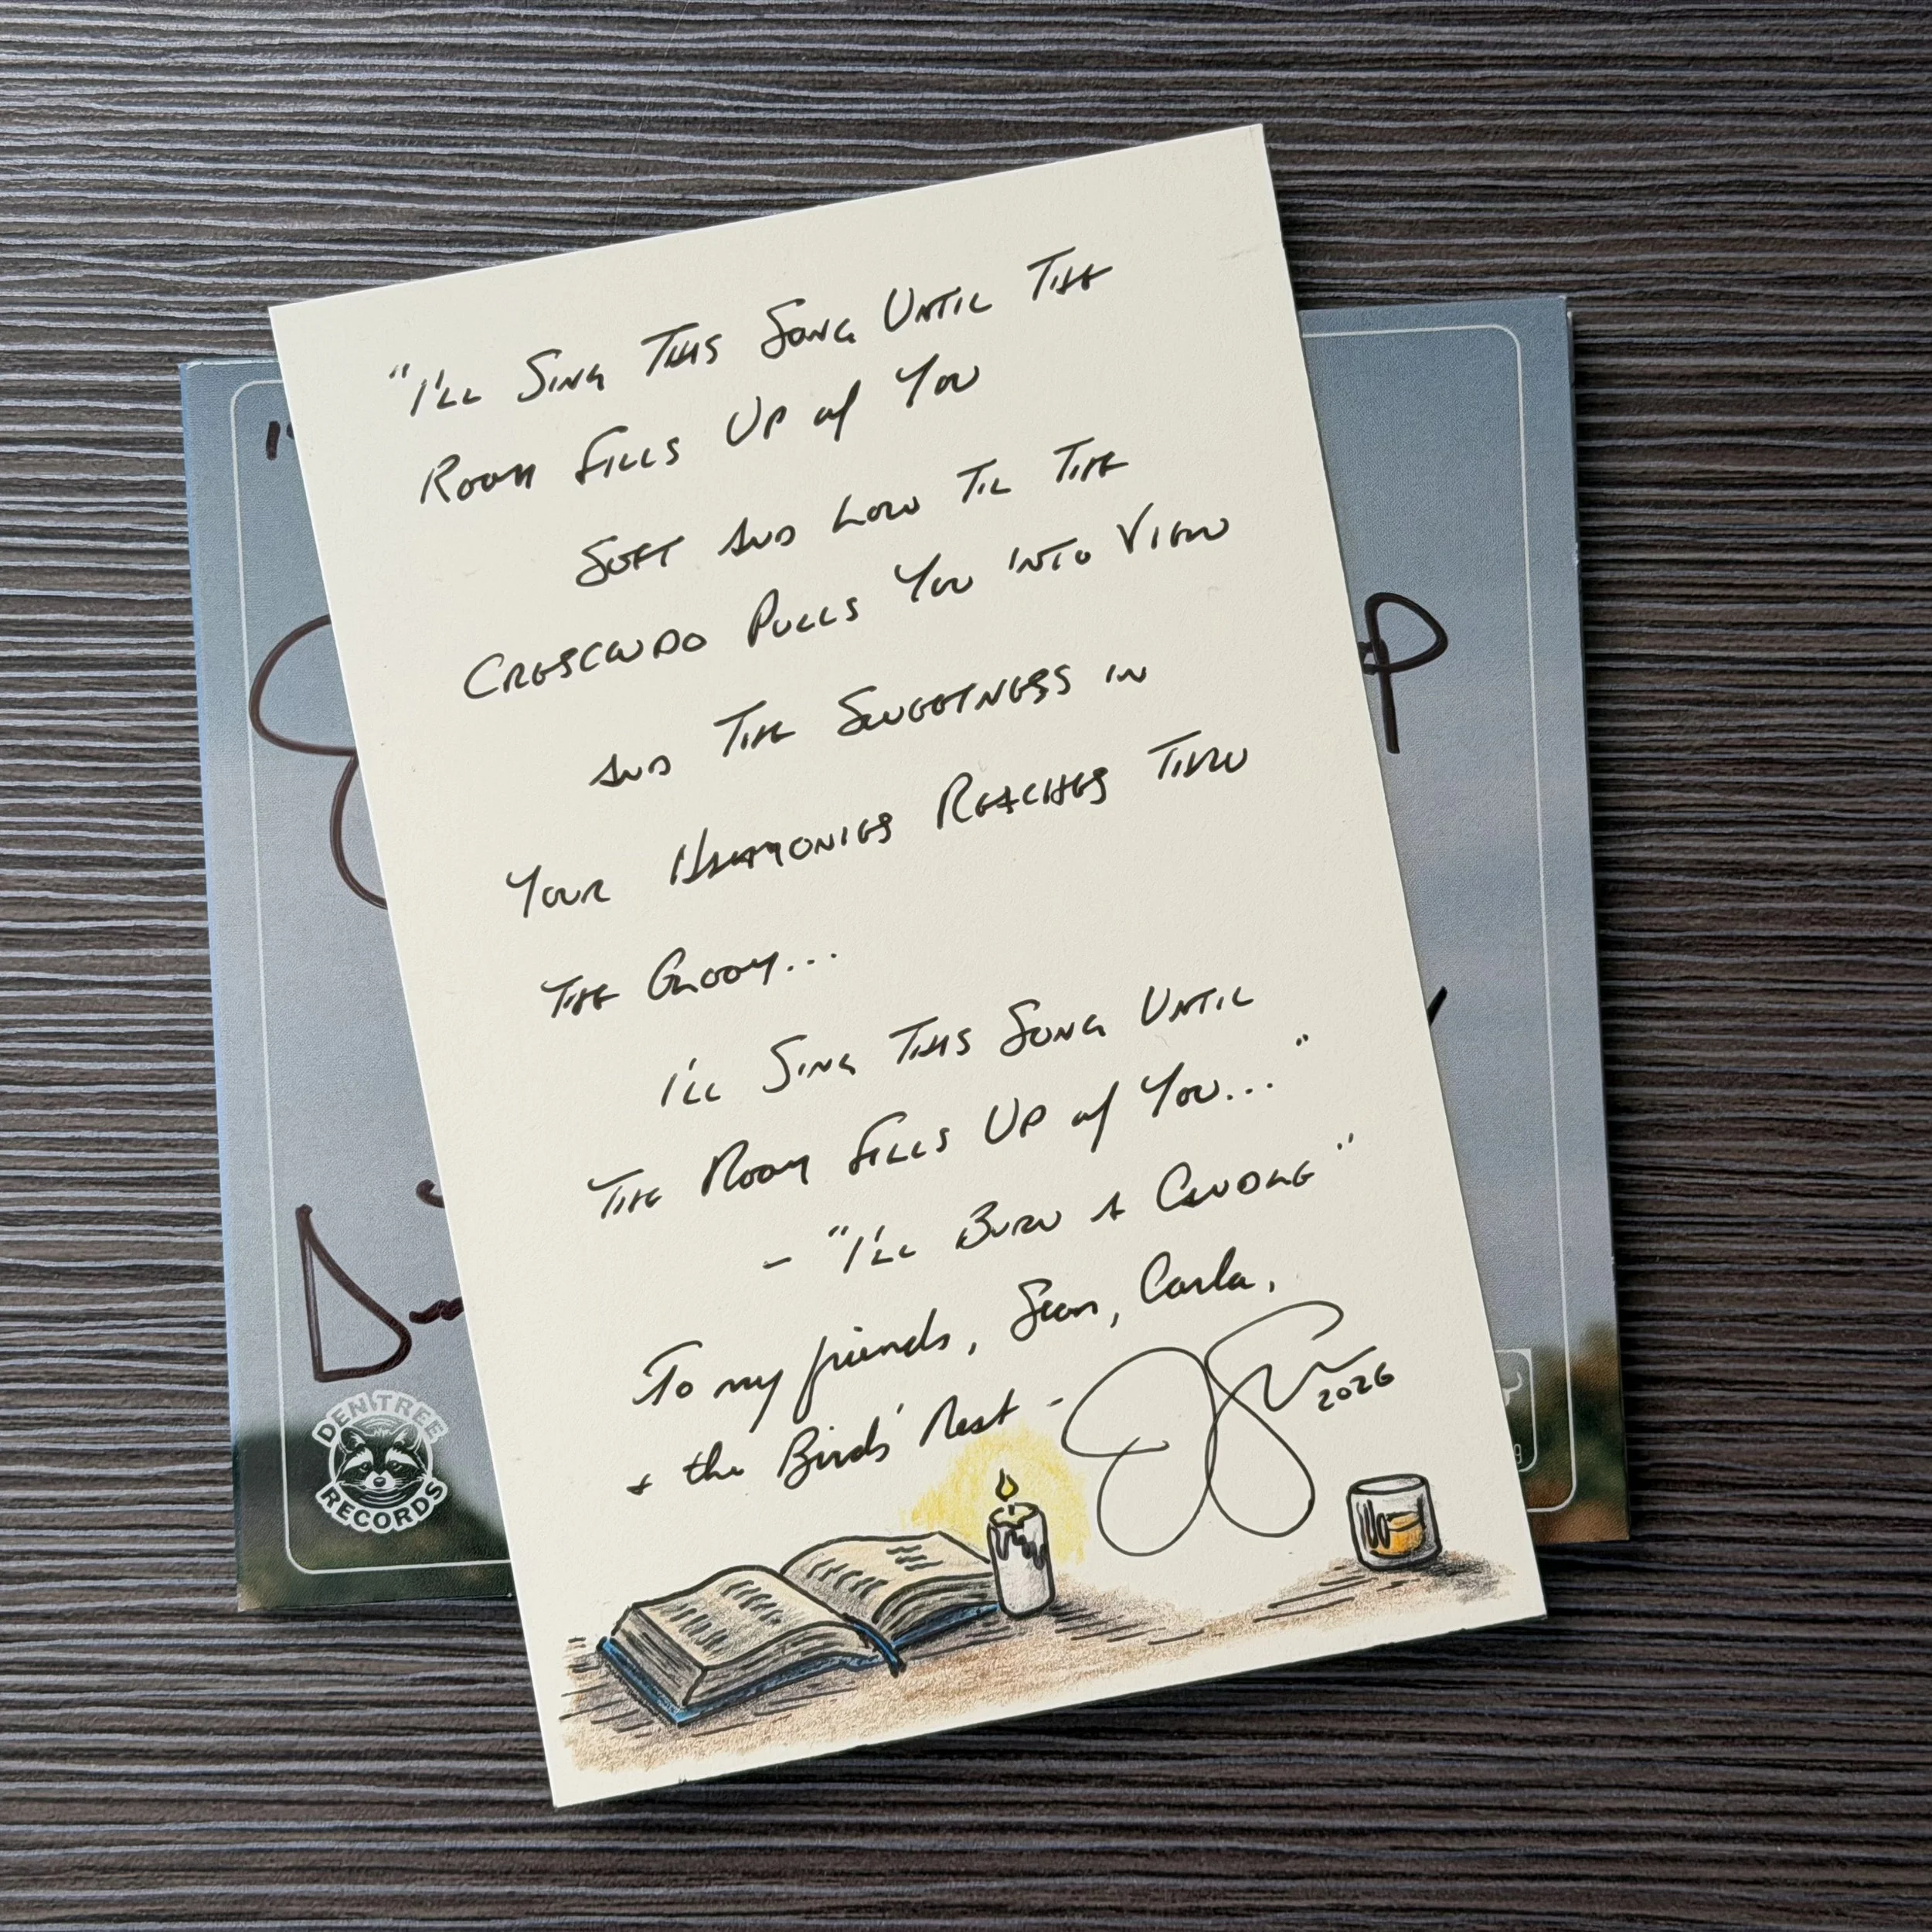 "I'LL SING THIS SONG UNTIL THE
ROOM FILLS UP w/ YOU
SOFT AND LOW TIL THE
CRESCENDO PULLS YOU INTO VIEW
AND THE SWEETNESS IN
YOUR HARMONIES REACHES THRU
THE GLOOM...
I'LL SING THIS SONG UNTIL
THE ROOM FILLS UP w/ YOU..."
- "I'LL BURN A CANDLE"
To my friends, Sean, Carla,
+ the Birds' Nest -
2026
DEN TREE
RECORDS